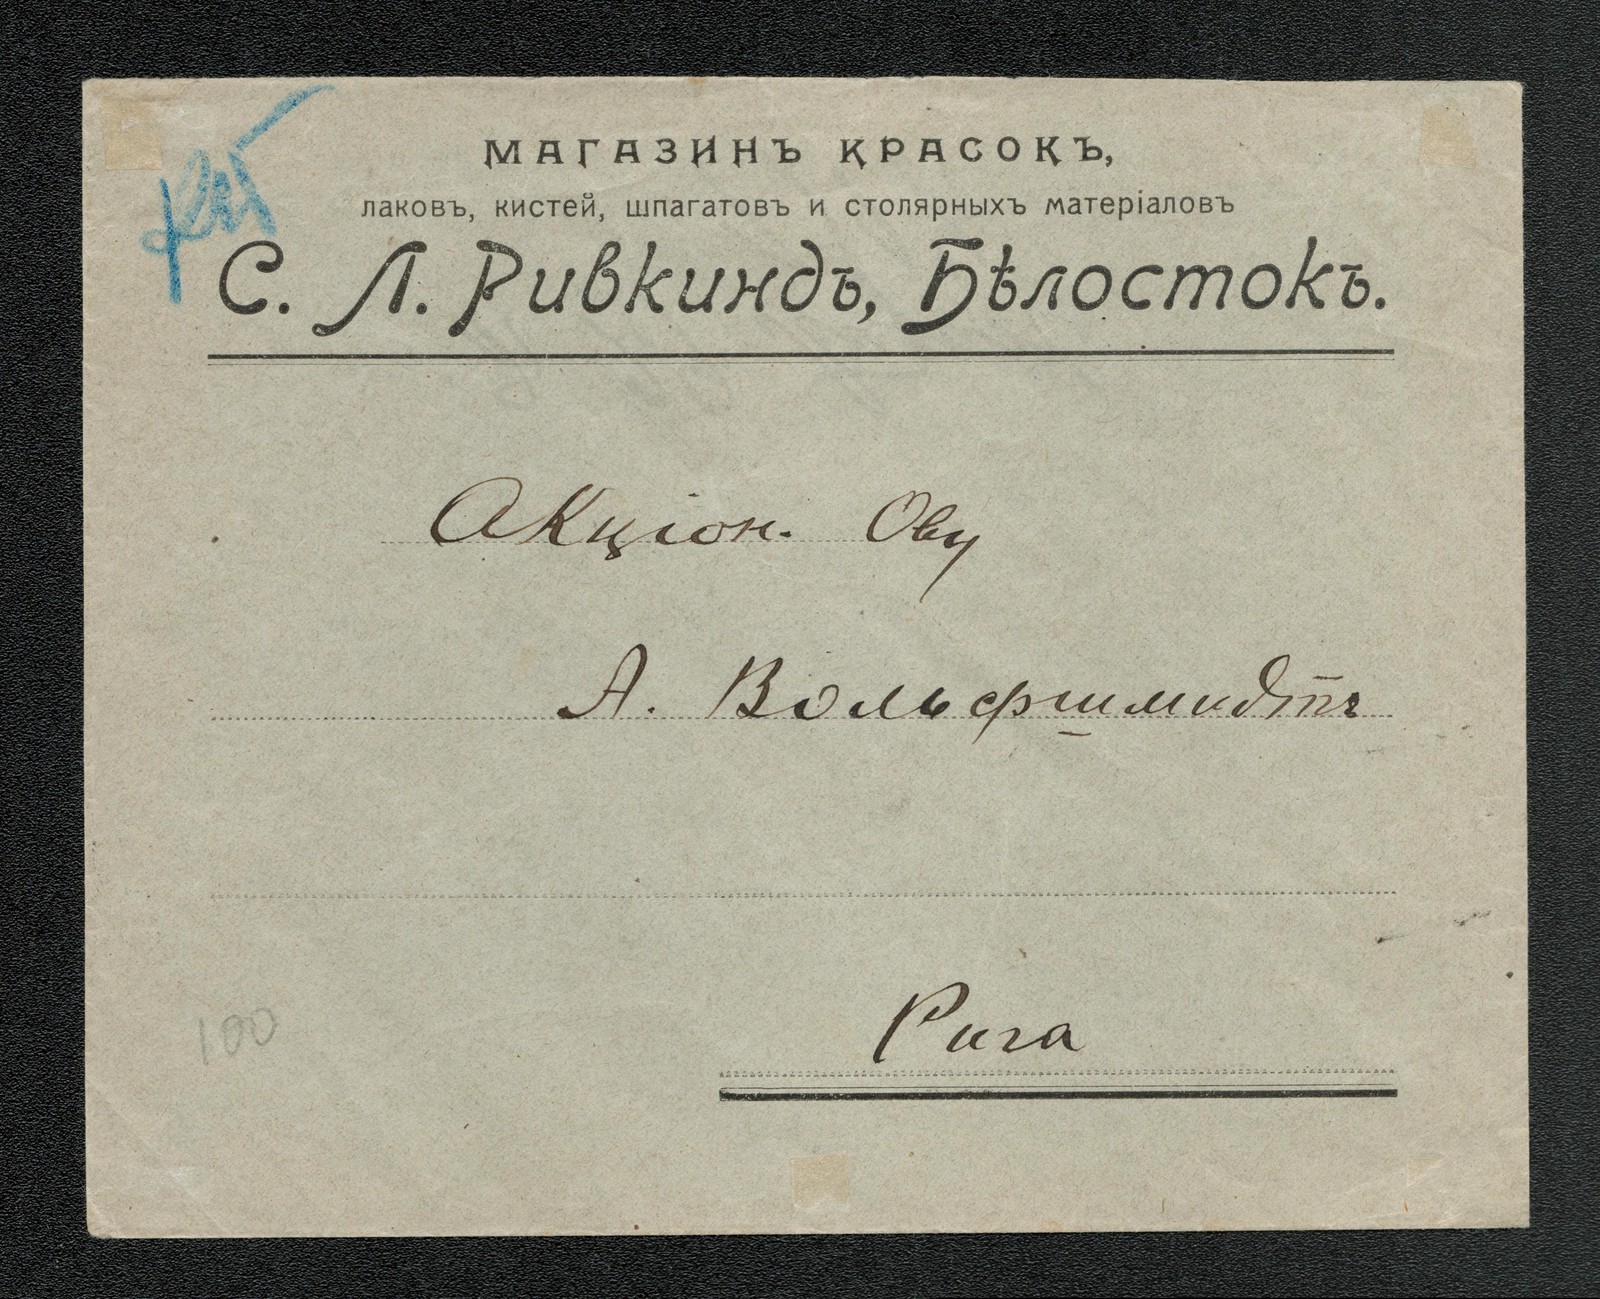 МАГАЗИНЪ КРАСОКЪ,
лаковъ, кистей, шпагатовъ и столярныхъ матеріаловъ
С. Л. Ривкиндъ, Бѣлостокъ.
Акціон. Ову
А. Вольфшмидтъ
Рига
100